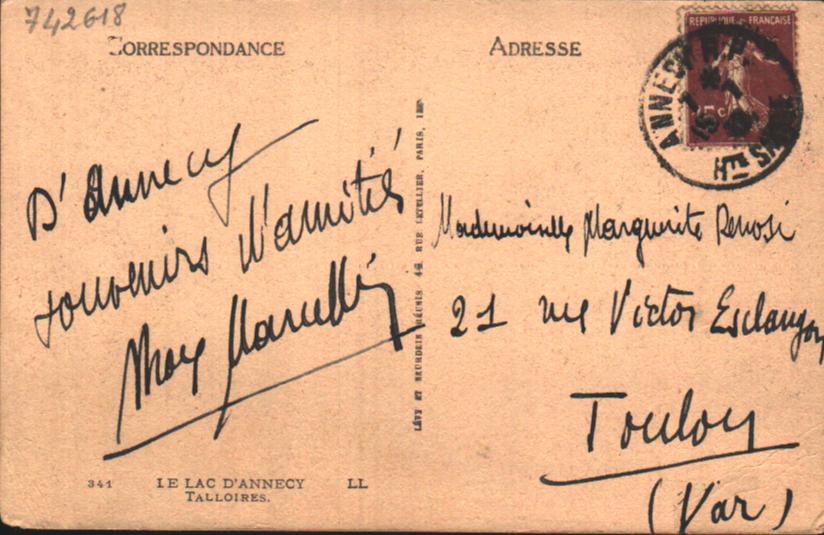 742618
CORRESPONDANCE
ADRESSE
REPUBLIQUE FRANÇAISE
ANNECY R.P.
D'Annecy
souvenirs d'amitiés
Max
LÉVY ET NEURDEIN RÉUNIS 44, RUE LETELLIER, PARIS, IMP
Mademoiselle Marguerite Renosi
21 rue Victor Esclangon
Toulon
(Var)
341 LE LAC D'ANNECY LL
TALLOIRES.